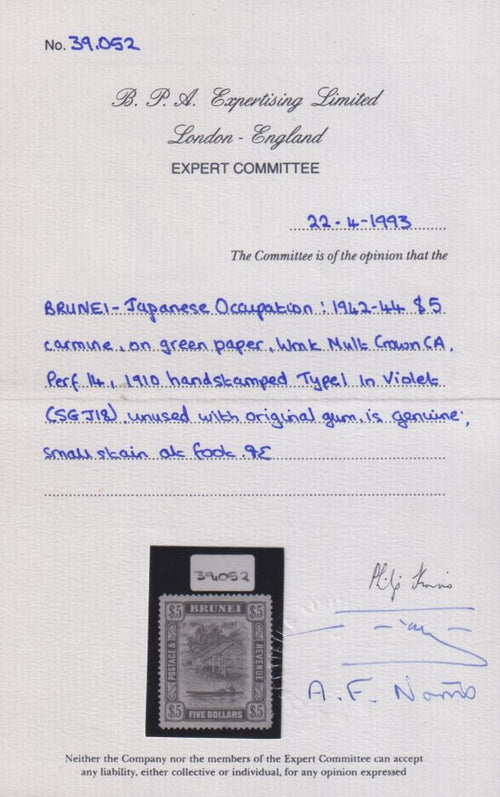 No. 39.052
B. P. A. Expertising Limited
London - England
EXPERT COMMITTEE
22-4-1993
The Committee is of the opinion that the
BRUNEI - Japanese Occupation : 1942-44 $5
carmine, on green paper, Wmk Mult Crown CA,
Perf 14, 1910 handstamped Type 1 in Violet
(SG J18), unused with original gum, is genuine;
small stain at foot.
39.052
$5 BRUNEI $5
POSTAGE & REVENUE
$5 FIVE DOLLARS $5
A. F. Norris
Neither the Company nor the members of the Expert Committee can accept
any liability, either collective or individual, for any opinion expressed